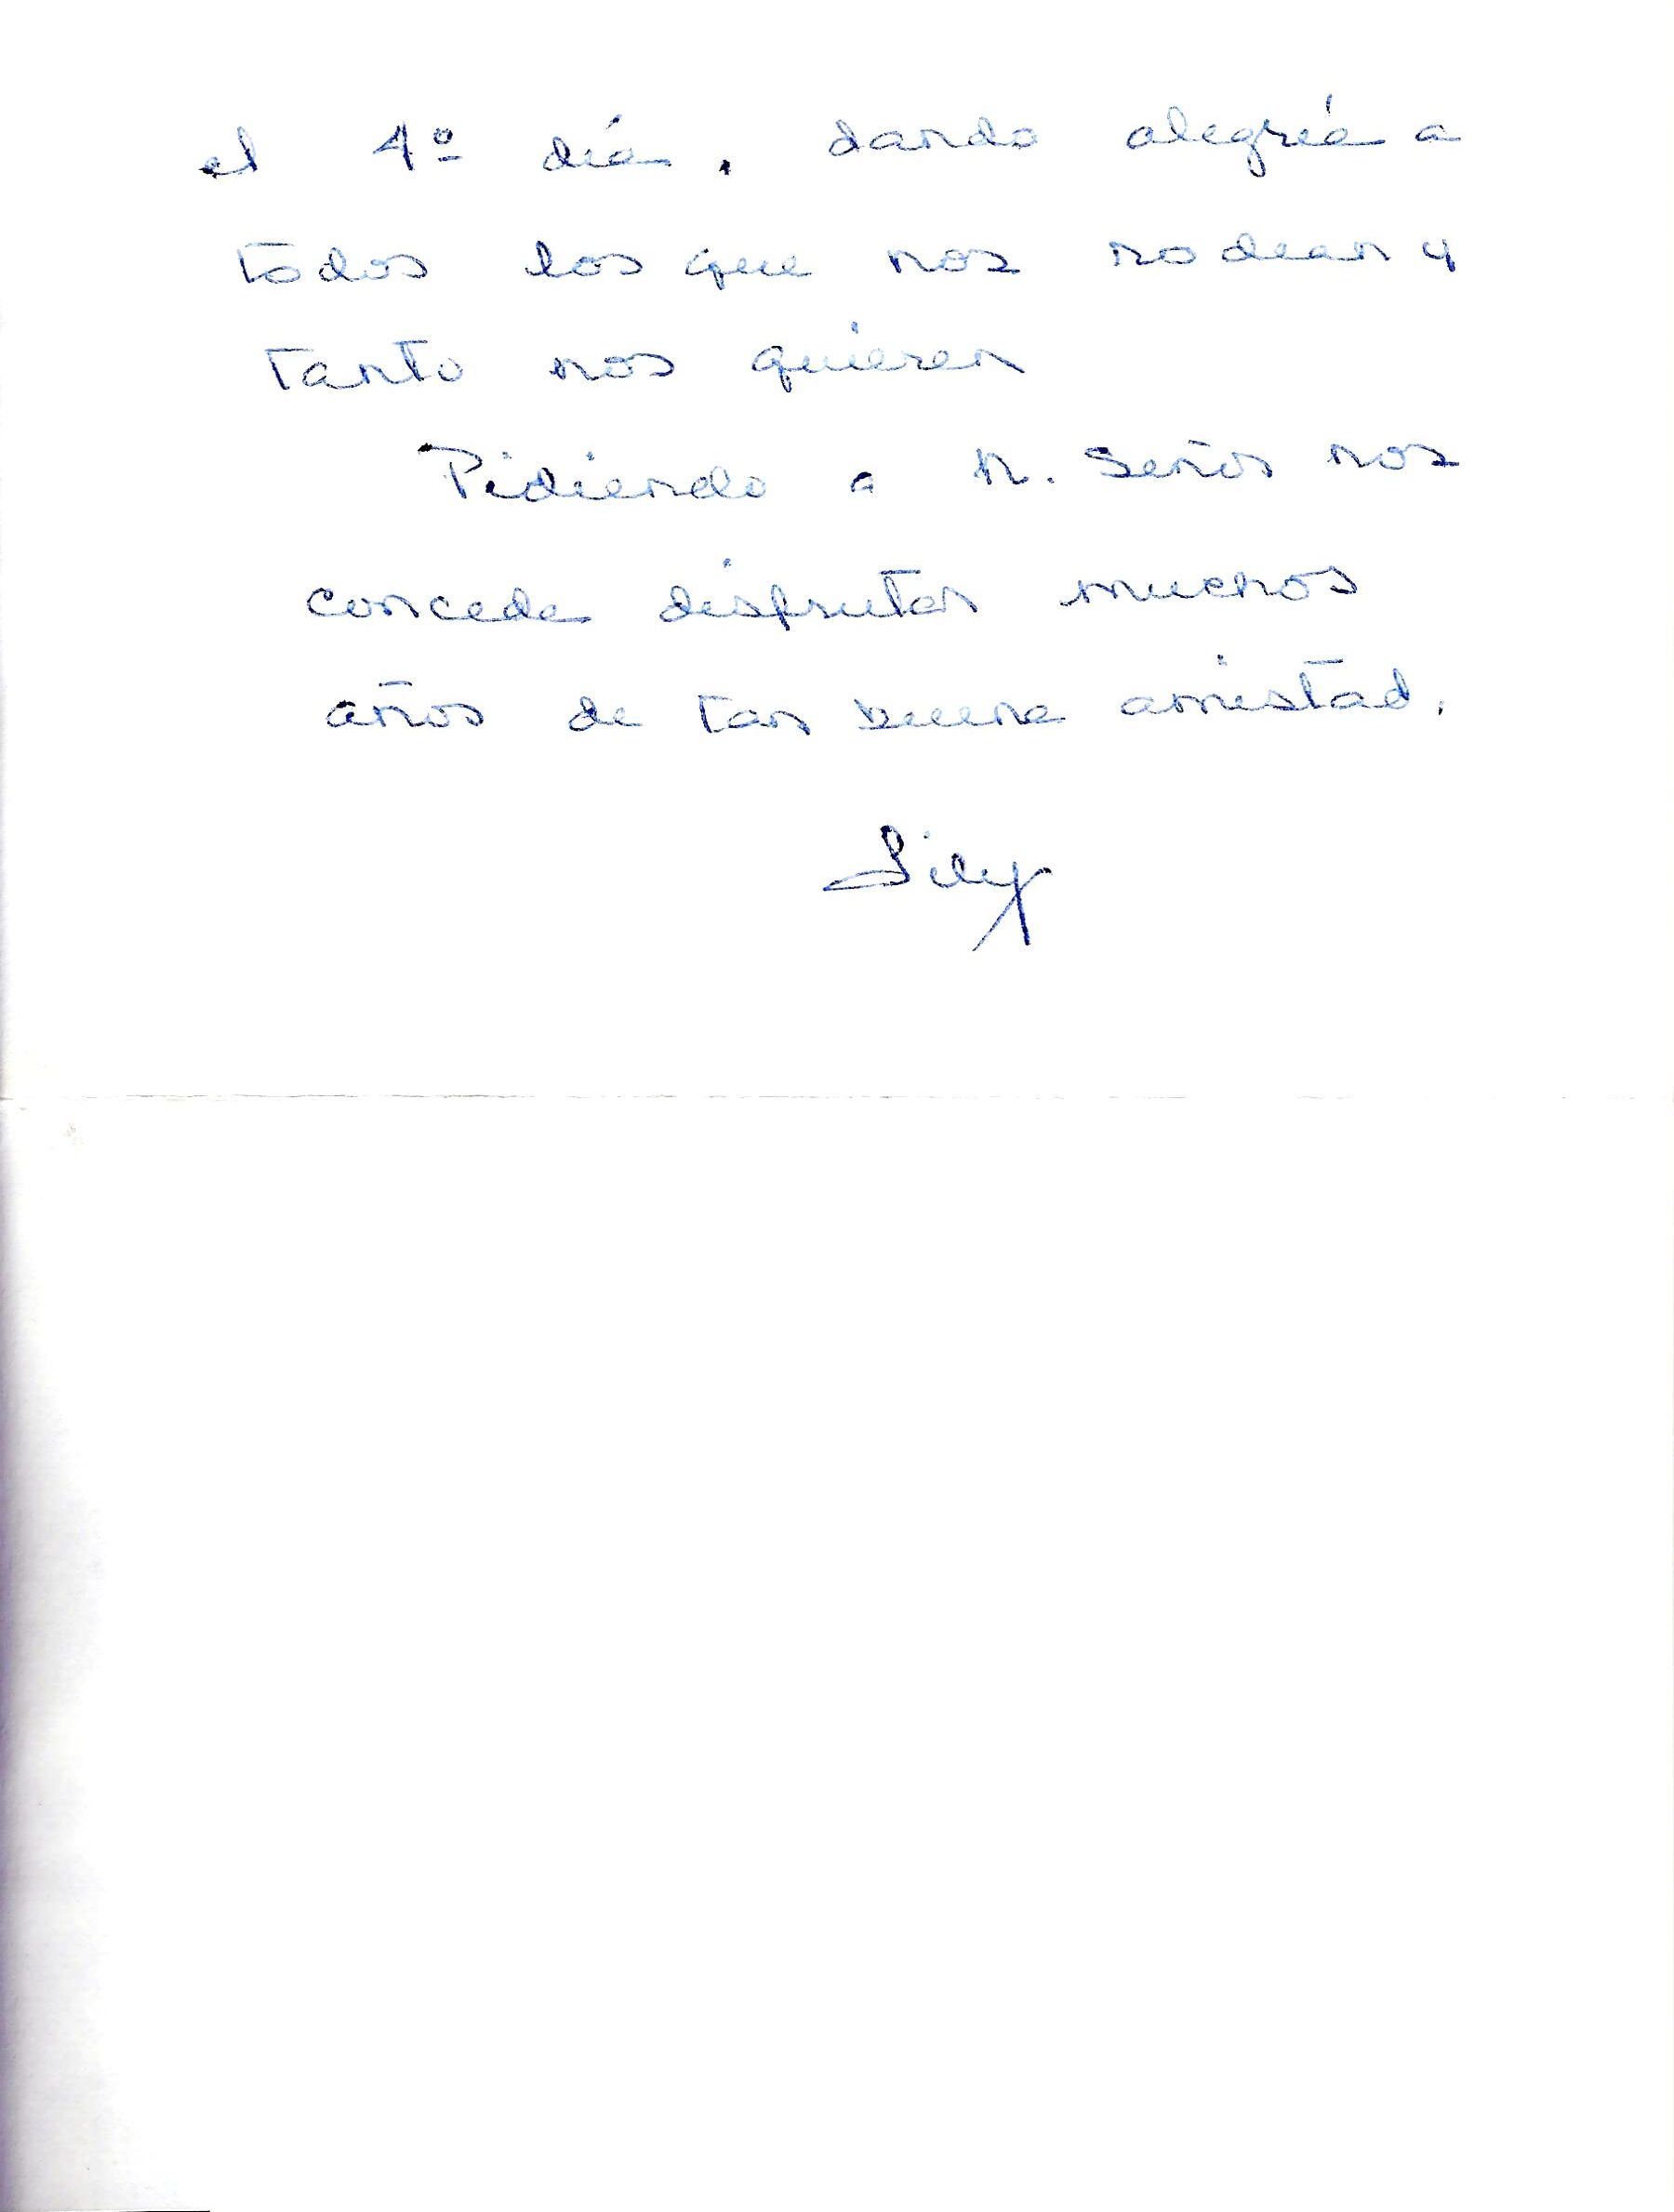 el 4º día, dando alegría a
todos los que nos rodean y
tanto nos quieren
Pidiendo a N. Señor nos
conceda disfrutar muchos
años de tan buena amistad.
Lily